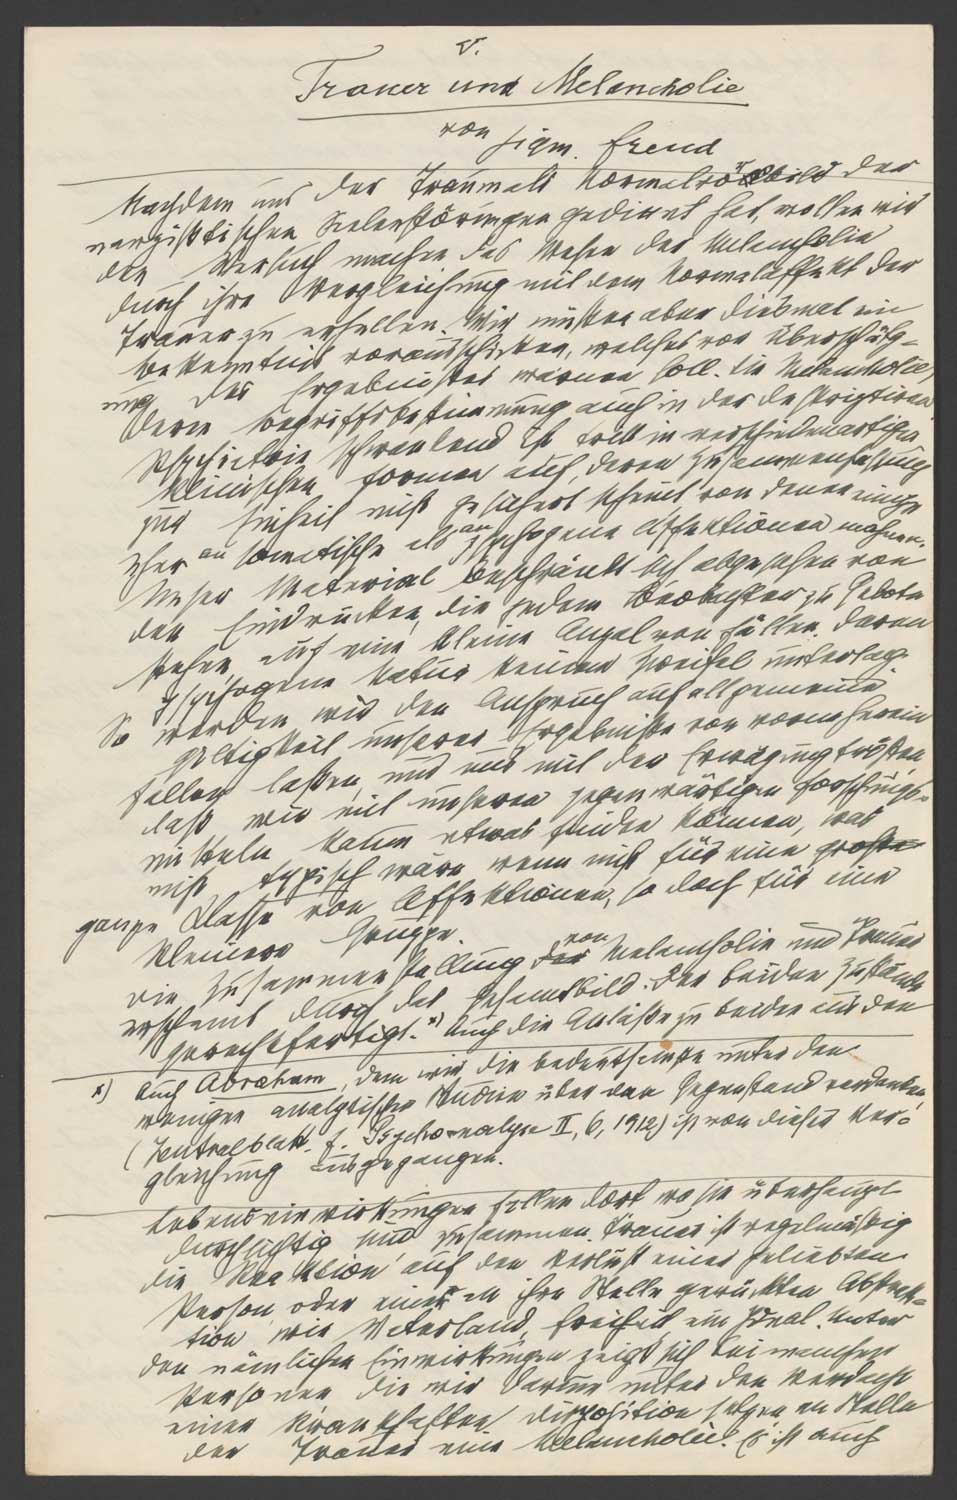 V.
Trauer und Melancholie
von Sigm. Freud
Nachdem uns der Traum als Normalvorbild der
narzißtischen Seelenstörungen gedient hat, wollen wir
den Versuch machen das Wesen der Melancholie
durch ihre Vergleichung mit dem Normalaffekt der
Trauer zu erhellen. Wir müssen aber diesmal ein
Bekenntnis vorausschicken, welches vor Überschätz-
ung des Ergebnisses warnen soll. Die Melancholie,
deren Begriffsbestimmung auch in der deskriptiven
Psychiatrie schwankend ist tritt in verschiedenartigen
klinischen Formen auf, deren Zusammenfassung
zur Einheit nicht gesichert scheint von denen einige
eher an somatische als an psychogene Affektionen mahnen.
Unser Material beschränkt sich abgesehen von
den Eindrücken, die jedem Beobachter zu Gebote
stehen, auf eine kleine Anzal von Fällen, deren
psychogene Natur keinem Zweifel unterlag.
So werden wir den Anspruch auf allgemeine
Giltigkeit unserer Ergebnisse von vorneherein
fallen lassen und uns mit der Erwägung trösten,
daß wir mit unseren gegenwärtigen Forschungs-
mitteln kaum etwas finden können, was
nicht typisch wäre wenn nicht für eine große
ganze Klasse von Affektionen, so doch für eine
kleinere Gruppe.
Die Zusammenstellung der von Melancholie und Trauer
erscheint durch das Gesamtbild der beiden Zustände
gerechtfertigt.x) Auch die Anlässe zu beiden aus den
x) Auch Abraham, dem wir die bedeutsamste unter den
wenigen analytischen Studien über den Gegenstand verdanken,
(Zentralblatt f. Psychoanalyse II, 6, 1912) ist von dieser Ver-
gleichung ausgegangen.
Lebenseinwirkungen fallen dort wo sie überhaupt
durchsichtig sind zusammen. Trauer ist regelmäßig
die Reaktion auf den Verlust einer geliebten
Person oder einer an ihre Stelle gerückten Abstrak-
tion wie Vaterland, Freiheit ein Ideal. Unter
den nämlichen Einwirkungen zeigt sich bei manchen
Personen die wir darum unter den Verdacht
einer krankhaften Disposition setzen an Stelle
der Trauer eine Melancholie. Es ist auch